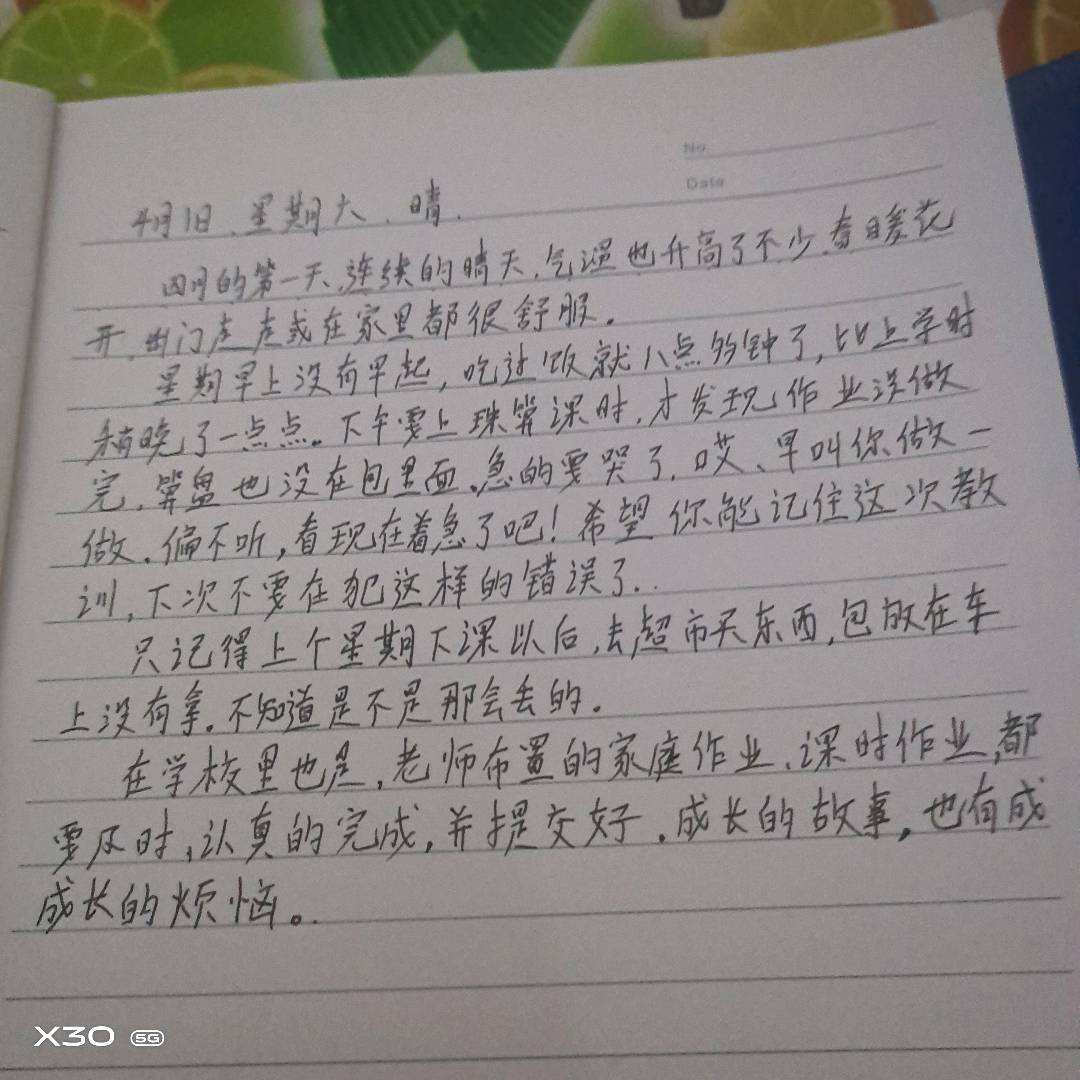 No
Date
4月1日、星期六、晴、
四月的第一天,连续的晴天,气温也升高了不少,春暖花
开,出门走走或在家里都很舒服。
星期早上没有早起,吃过饭就八点多钟了,比上学时
稍晚了一点点。下午要上珠算课时,才发现作业没做
完,算盘也没在包里面,急的要哭了,哎、早叫你做一
做,偏不听,看现在着急了吧!希望你能记住这次教
训,下次不要在犯这样的错误了..
只记得上个星期下课以后,去超市买东西,包放在车
上没有拿。不知道是不是那会丢的。
在学校里也是,老师布置的家庭作业、课时作业,都
要及时,认真的完成,并提交好,成长的故事,也有成
成长的烦恼。
X30 5G